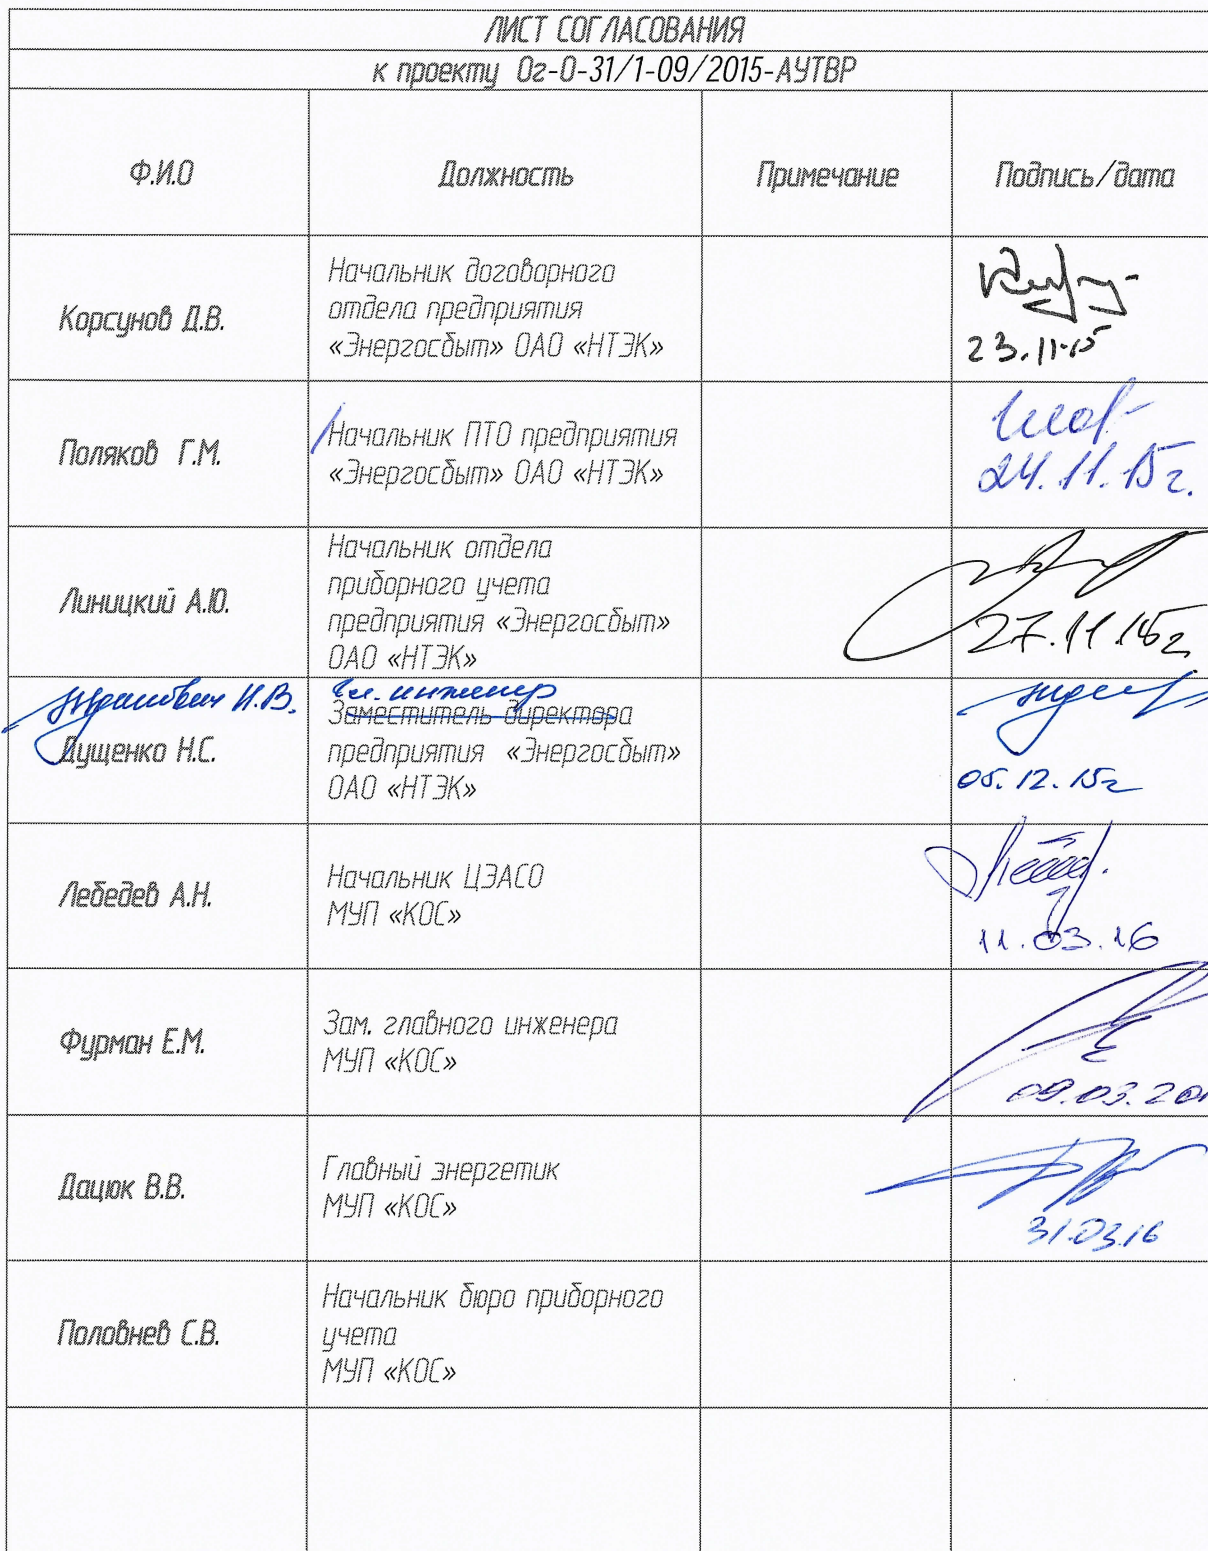 ЛИСТ СОГЛАСОВАНИЯ
к проекту Ог-О-31/1-09/2015-АУТВР
Ф.И.О
Должность
Примечание
Подпись/дата
Корсунов Д.В.
Начальник договорного
отдела предприятия
«Энергосбыт» ОАО «НТЭК»
23.11.15
Поляков Г.М.
Начальник ПТО предприятия
«Энергосбыт» ОАО «НТЭК»
24.11.15г.
Линицкий А.Ю.
Начальник отдела
приборного учета
предприятия «Энергосбыт»
ОАО «НТЭК»
27.11.15г
И.В.
Дущенко Н.С.
Гл. инженер
Заместитель директора
предприятия «Энергосбыт»
ОАО «НТЭК»
05.12.15г
Лебедев А.Н.
Начальник ЦЭАСО
МУП «КОС»
11.03.16
Фурман Е.М.
Зам. главного инженера
МУП «КОС»
09.03.201
Дацюк В.В.
Главный энергетик
МУП «КОС»
31.03.16
Половнев С.В.
Начальник бюро приборного
учета
МУП «КОС»